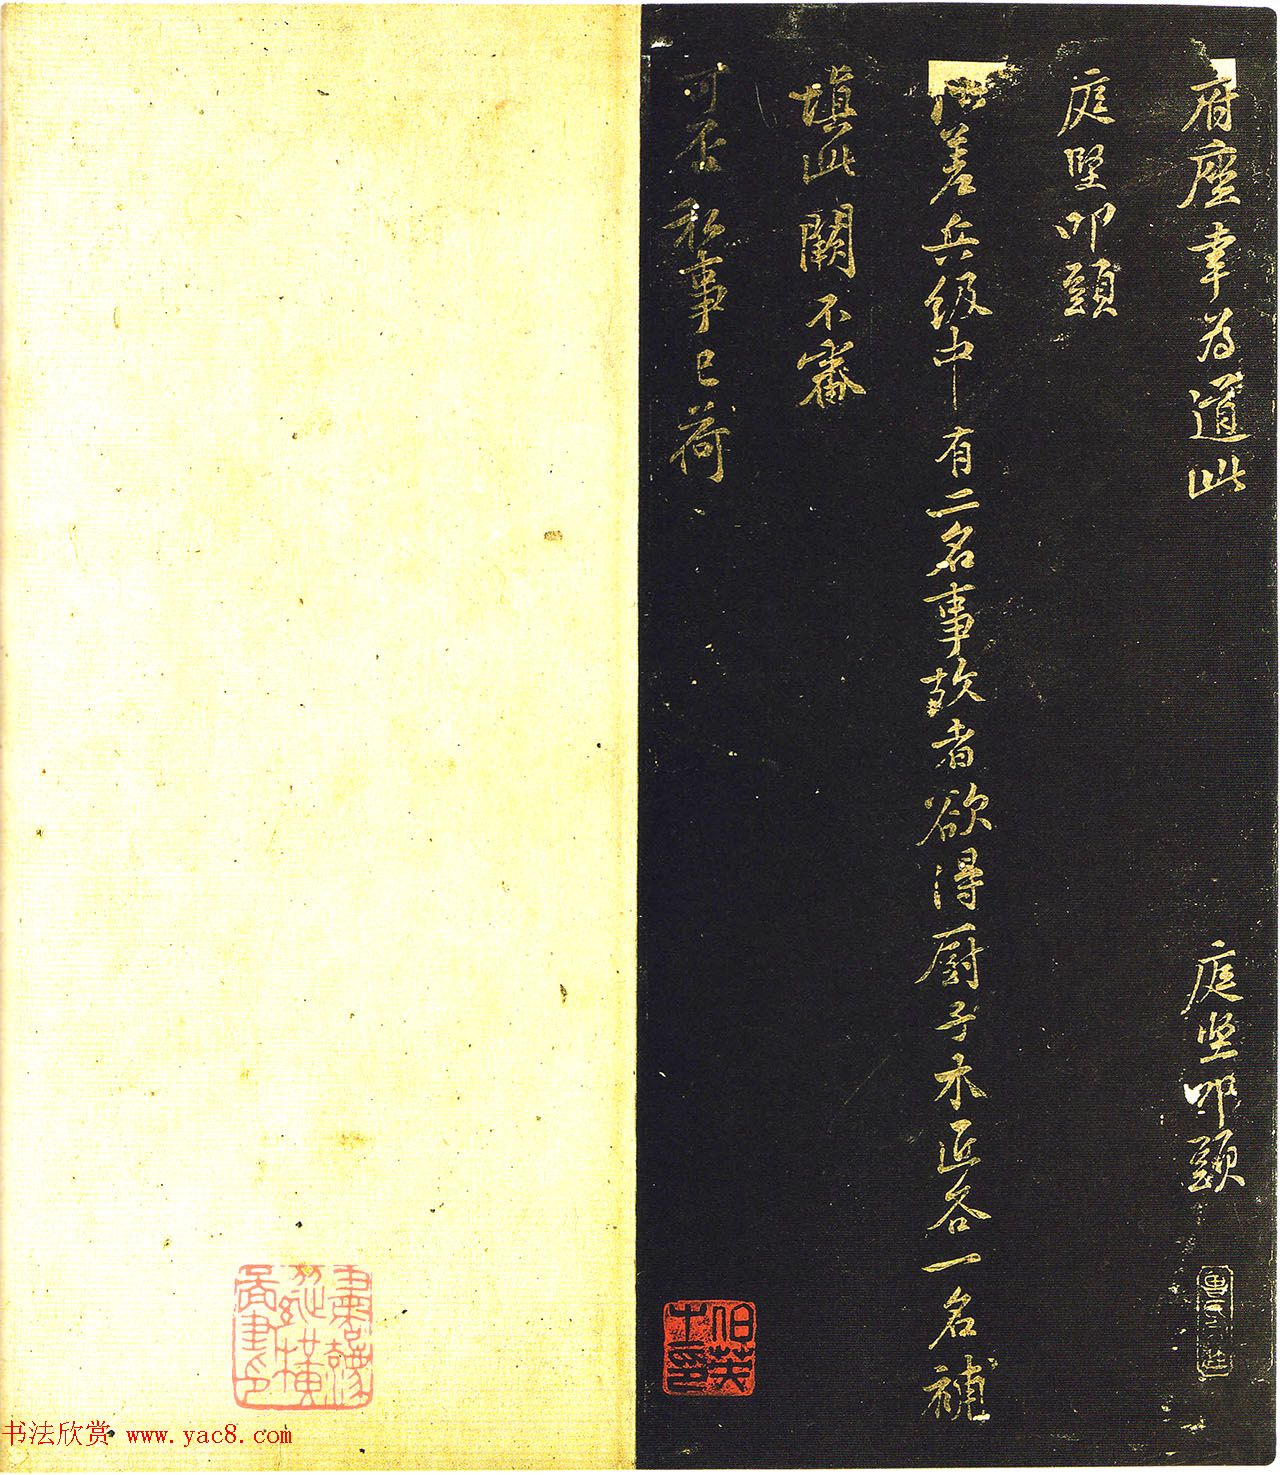 府座幸为道此 庭堅叩頭
庭堅叩頭
差兵级中有二名事故者欲得厨子木匠各一名補
填此闕不審
可否私事已荷
伯英
士印
书法欣赏 www.yac8.com